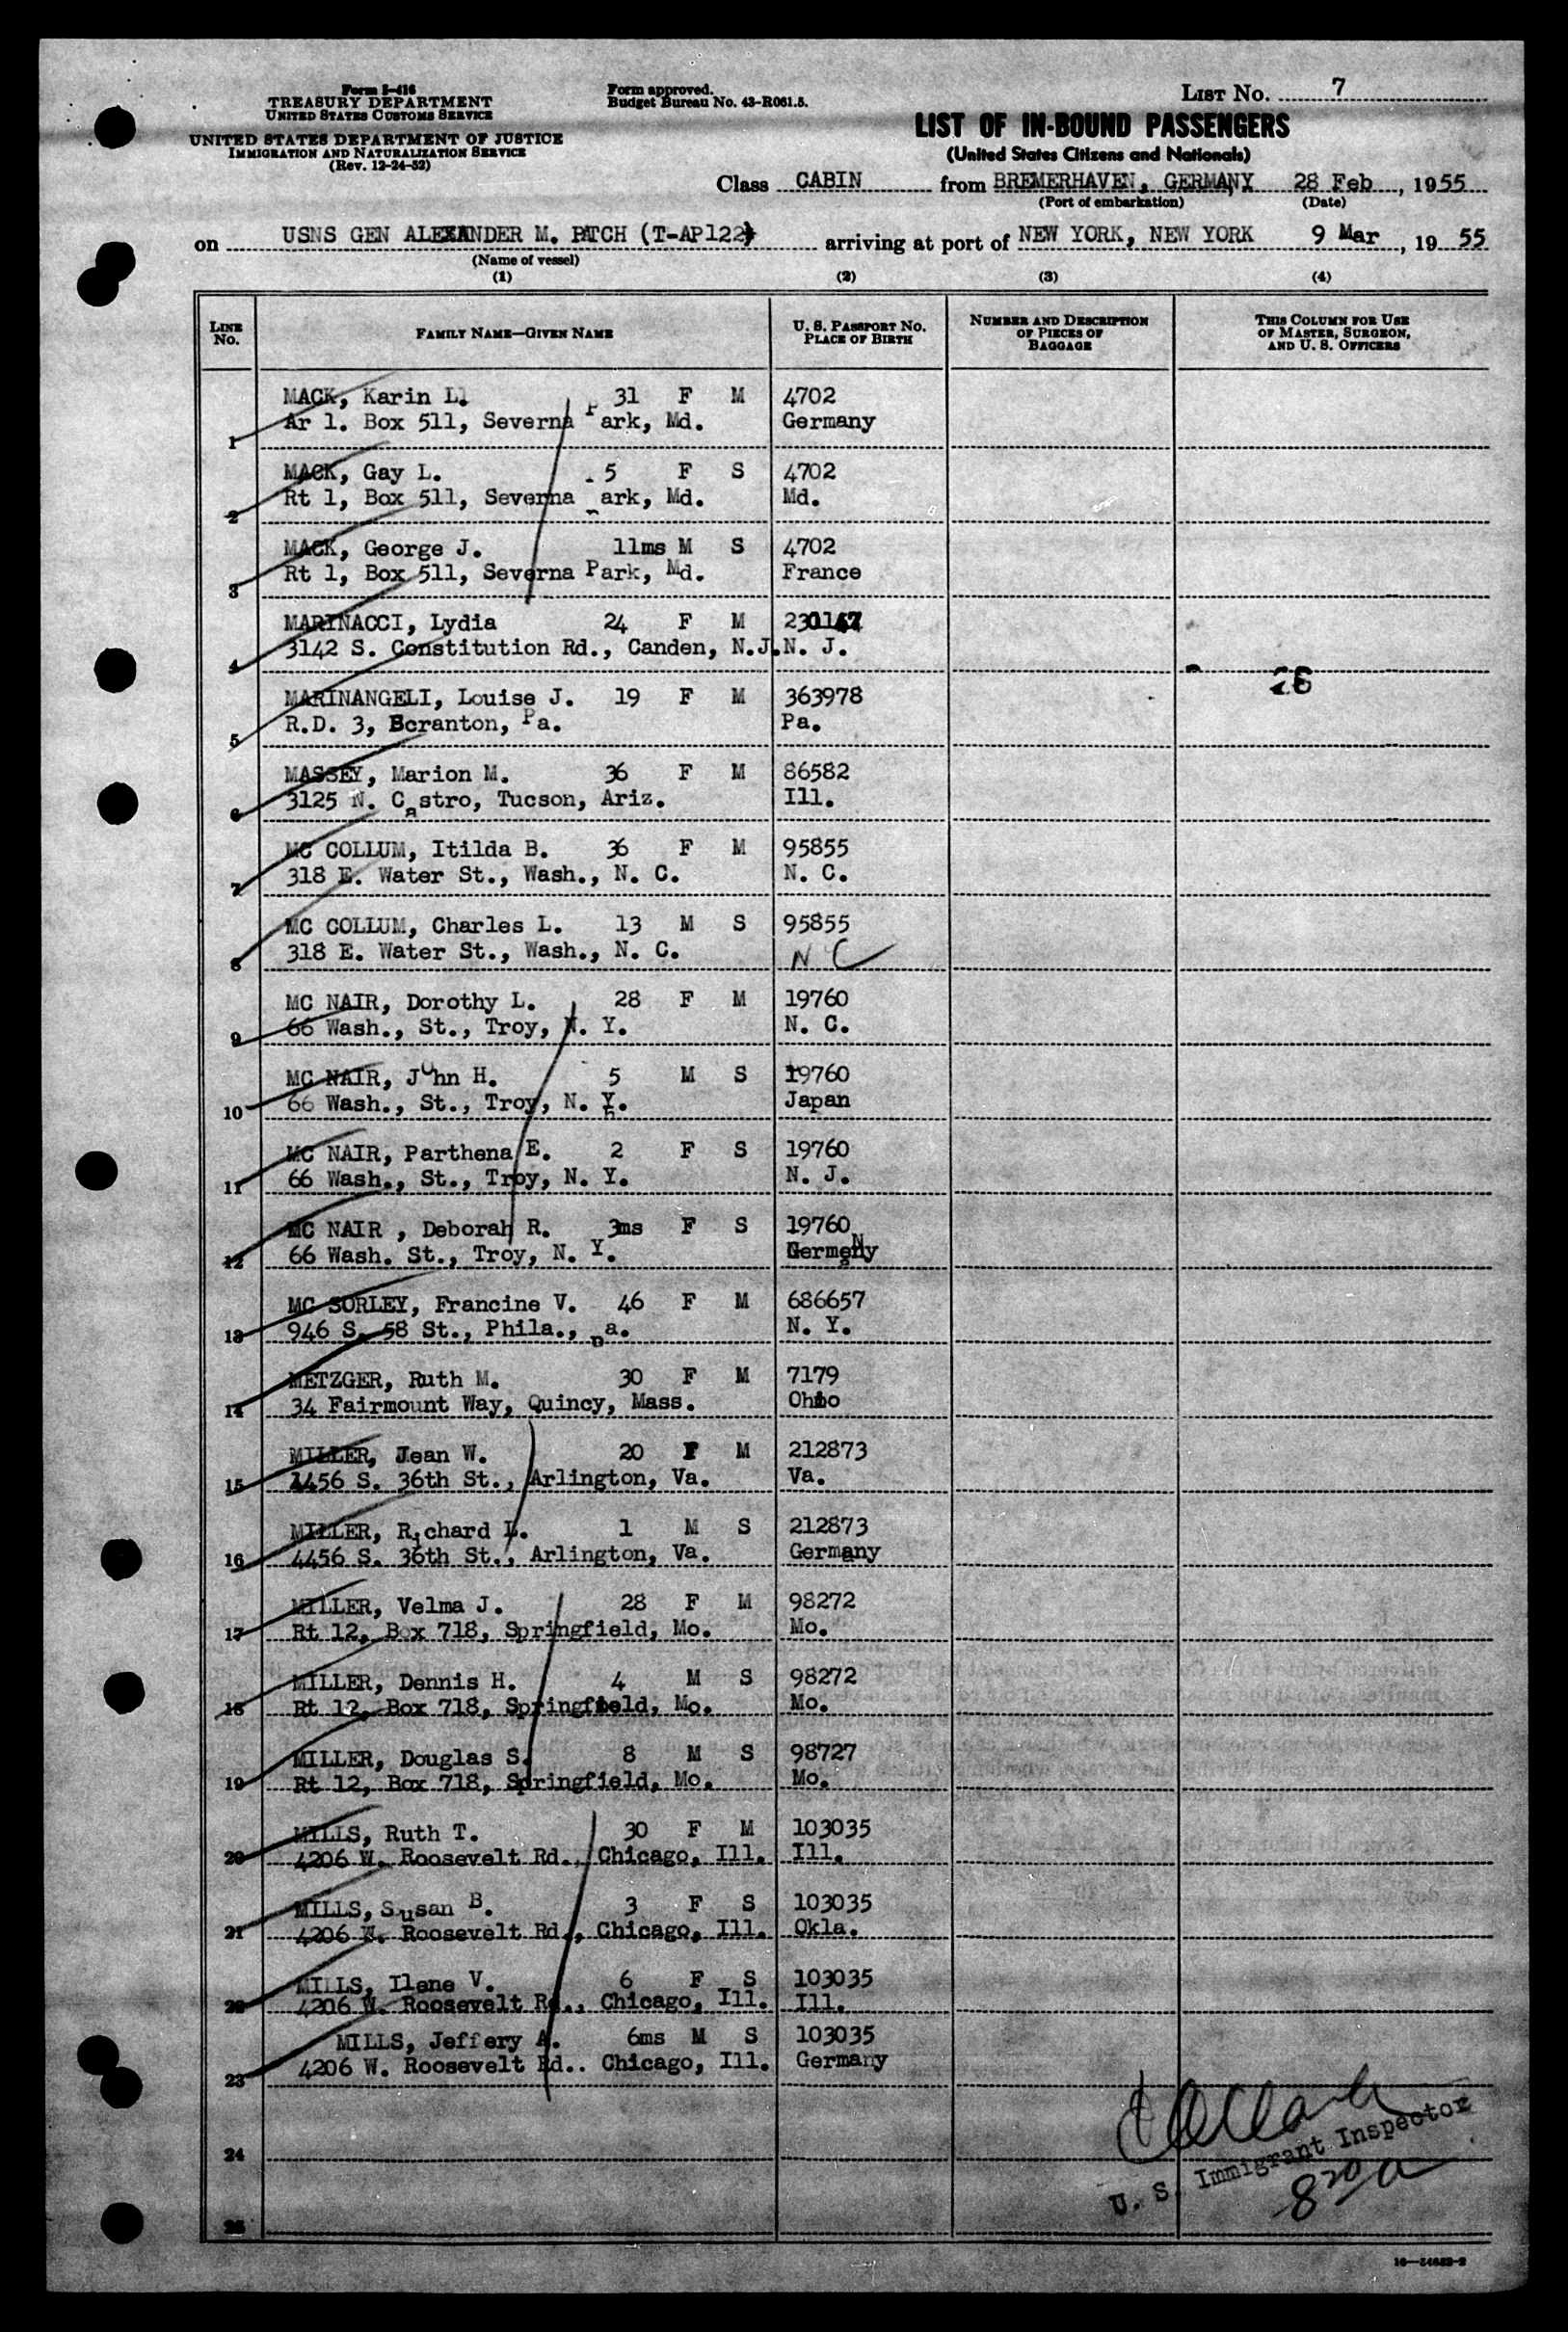 Form I-416
TREASURY DEPARTMENT
UNITED STATES CUSTOMS SERVICE
UNITED STATES DEPARTMENT OF JUSTICE
IMMIGRATION AND NATURALIZATION SERVICE
(Rev. 12-24-52)
Form approved.
Budget Bureau No. 43-R061.5.
LIST No. 7
LIST OF IN-BOUND PASSENGERS
(United States Citizens and Nationals)
Class CABIN from BREMERHAVEN, GERMANY 28 Feb, 1955
(Port of embarkation) (Date)
on USNS GEN ALEXANDER M. PATCH (T-AP122) arriving at port of NEW YORK, NEW YORK 9 Mar, 1955
(Name of vessel)
(1) (2) (3) (4)
LINE No. FAMILY NAME—GIVEN NAME U. S. PASSPORT NO. PLACE OF BIRTH NUMBER AND DESCRIPTION OF PIECES OF BAGGAGE THIS COLUMN FOR USE OF MASTER, SURGEON, AND U. S. OFFICERS
MACK, Karin L. 31 F M 4702
1 Ar 1. Box 511, Severna Park, Md. Germany
MACK, Gay L. 5 F S 4702
2 Rt 1, Box 511, Severna Park, Md. Md.
MACK, George J. 11ms M S 4702
3 Rt 1, Box 511, Severna Park, Md. France
MARINACCI, Lydia 24 F M 230147
4 3142 S. Constitution Rd., Canden, N.J. N. J.
26
MARINANGELI, Louise J. 19 F M 363978
5 R.D. 3, Scranton, Pa. Pa.
MASSEY, Marion M. 36 F M 86582
6 3125 N. Castro, Tucson, Ariz. Ill.
MC COLLUM, Itilda B. 36 F M 95855
7 318 E. Water St., Wash., N. C. N. C.
MC COLLUM, Charles L. 13 M S 95855
8 318 E. Water St., Wash., N. C. N C
MC NAIR, Dorothy L. 28 F M 19760
9 66 Wash., St., Troy, N. Y. N. C.
MC NAIR, John H. 5 M S 19760
10 66 Wash., St., Troy, N. Y. Japan
MC NAIR, Parthena E. 2 F S 19760
11 66 Wash., St., Troy, N. Y. N. J.
MC NAIR , Deborah R. 3ms F S 19760
12 66 Wash. St., Troy, N. Y. Germany
MC SORLEY, Francine V. 46 F M 686657
13 946 S. 58 St., Phila., Pa. N. Y.
METZGER, Ruth M. 30 F M 7179
14 34 Fairmount Way, Quincy, Mass. Ohio
MILLER, Jean W. 20 F M 212873
15 4456 S. 36th St., Arlington, Va. Va.
MILLER, Richard L. 1 M S 212873
16 4456 S. 36th St., Arlington, Va. Germany
MILLER, Velma J. 28 F M 98272
17 Rt 12, Box 718, Springfield, Mo. Mo.
MILLER, Dennis H. 4 M S 98272
18 Rt 12, Box 718, Springfield, Mo. Mo.
MILLER, Douglas S. 8 M S 98727
19 Rt 12, Box 718, Springfield, Mo. Mo.
MILLS, Ruth T. 30 F M 103035
20 4206 W. Roosevelt Rd., Chicago, Ill. Ill.
MILLS, Susan B. 3 F S 103035
21 4206 W. Roosevelt Rd., Chicago, Ill. Okla.
MILLS, Ilene V. 6 F S 103035
22 4206 W. Roosevelt Rd., Chicago, Ill. Ill.
MILLS, Jeffery A. 6ms M S 103035
23 4206 W. Roosevelt Rd.. Chicago, Ill. Germany
24
U. S. Immigrant Inspector
820 a
25